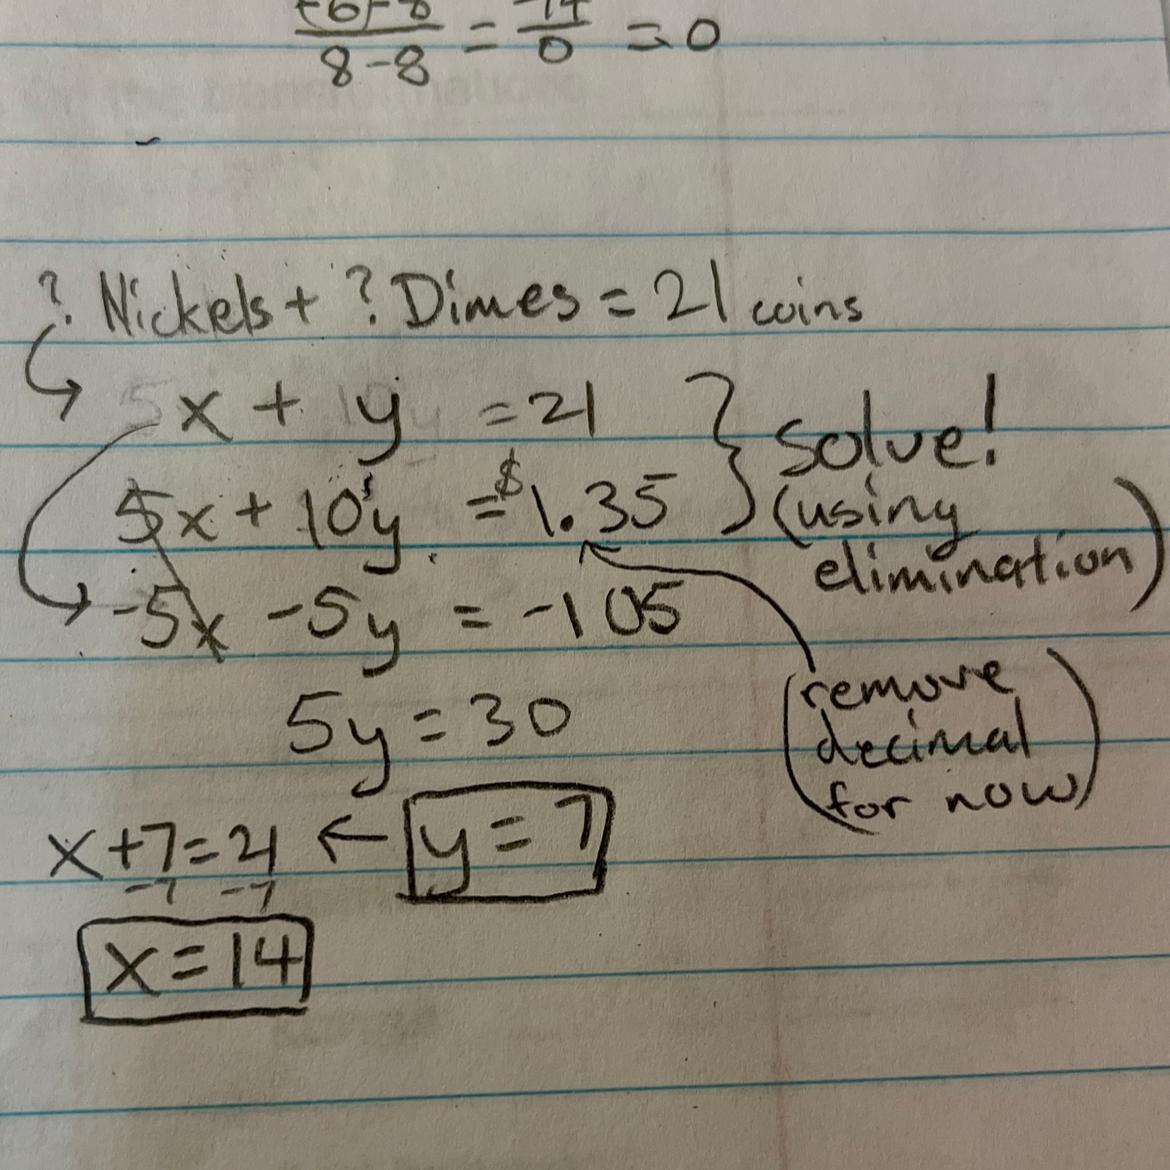 (-6)-8 / 8-8 = -14 / 0 = 0
? Nickels + ? Dimes = 21 coins
x + y = 21
5x + 10y = $1.35
solve!
(using
elimination)
-5x - 5y = -105
(remove
decimal
for now)
5y = 30
x+7=21 ← y = 7
-7 -7
x = 14